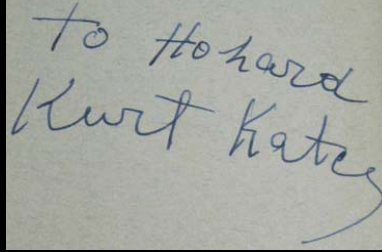 To Hohard
Kurt Katch